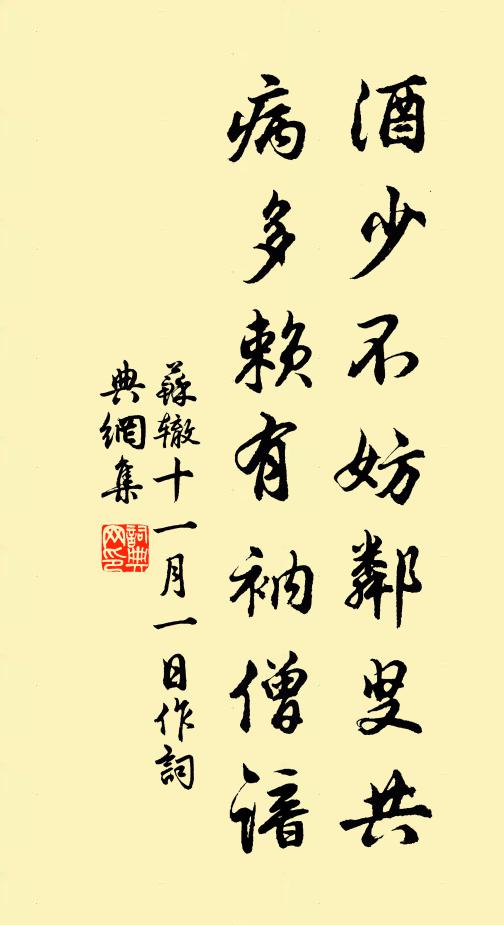 酒少不妨鄰叟共
病多賴有衲僧諳
蘇轍十一月一日作詞
典網集
詞典網印